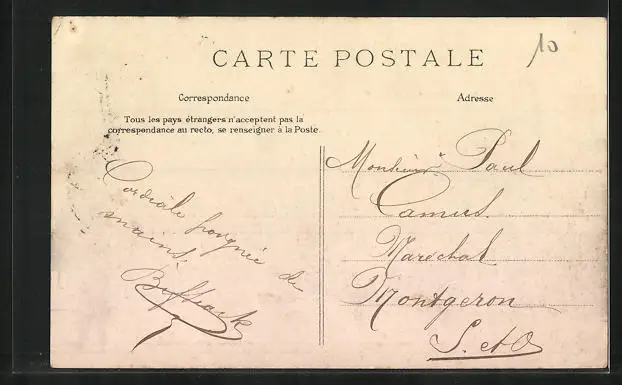 10
CARTE POSTALE
Correspondance
Adresse
Tous les pays étrangers n'acceptent pas la
correspondance au recto, se renseigner à la Poste.
Cordiale poignée de
mains.
Monsieur Paul
Camus
Maréchal
Montgeron
S. et O